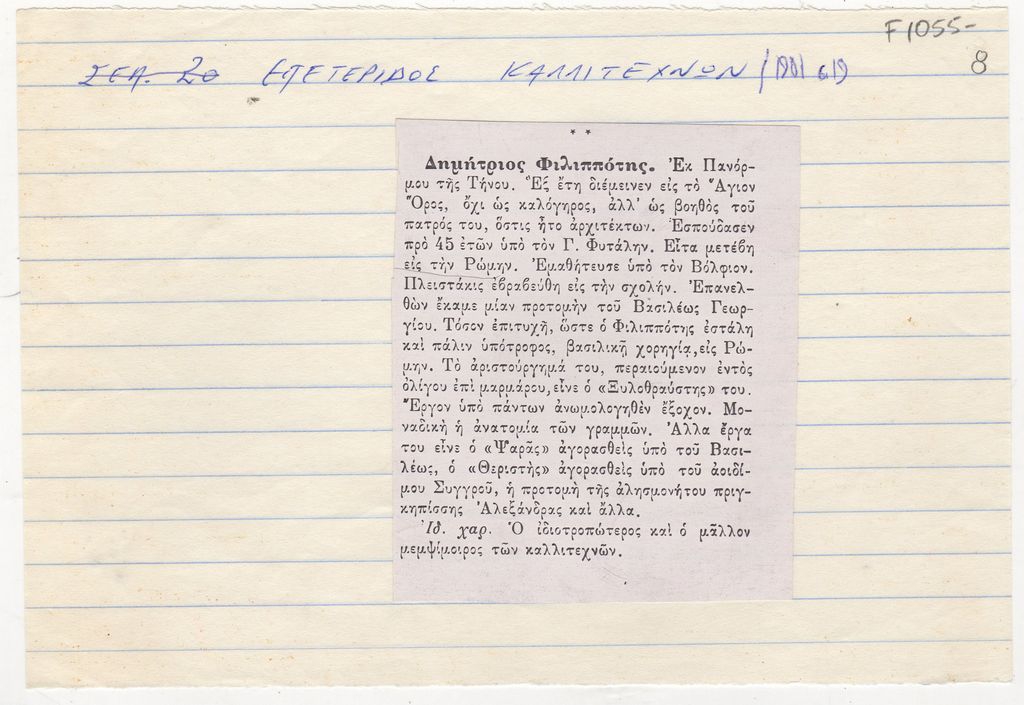 F1055-
8
ΣΕΛ. 20 ΕΠΕΤΕΡΙΔΟΣ ΚΑΛΛΙΤΕΧΝΩΝ / 1901
* *
Δημήτριος Φιλιππότης. Ἐκ Πανόρ-
μου τῆς Τήνου. Ἓξ ἔτη διέμεινεν εἰς τὸ Ἅγιον
Ὄρος, ὄχι ὡς καλόγηρος, ἀλλ' ὡς βοηθὸς τοῦ
πατρός του, ὅστις ἦτο ἀρχιτέκτων. Ἐσπούδασεν
πρὸ 45 ἐτῶν ὑπὸ τὸν Γ. Φυτάλην. Εἶτα μετέβη
εἰς τὴν Ῥώμην. Ἐμαθήτευσε ὑπὸ τὸν Βόλφιον.
Πλειστάκις ἐβραβεύθη εἰς τὴν σχολήν. Ἐπανελ-
θὼν ἔκαμε μίαν προτομὴν τοῦ Βασιλέως Γεωρ-
γίου. Τόσον ἐπιτυχῆ, ὥστε ὁ Φιλιππότης ἐστάλη
καὶ πάλιν ὑπότροφος, βασιλικῇ χορηγίᾳ, εἰς Ῥώ-
μην. Τὸ ἀριστούργημά του, περαιούμενον ἐντὸς
ὀλίγου ἐπὶ μαρμάρου, εἶνε ὁ «Ξυλοθραύστης» του.
Ἔργον ὑπὸ πάντων ἀνωμολογηθὲν ἔξοχον. Μο-
ναδικὴ ἡ ἀνατομία τῶν γραμμῶν. Ἄλλα ἔργα
του εἶνε ὁ «Ψαρᾶς» ἀγορασθεὶς ὑπὸ τοῦ Βασι-
λέως, ὁ «Θεριστὴς» ἀγορασθεὶς ὑπὸ τοῦ ἀοιδί-
μου Συγγροῦ, ἡ προτομὴ τῆς ἀλησμονήτου πριγ-
κηπίσσης Ἀλεξάνδρας καὶ ἄλλα.
Ἰδ. χαρ. Ὁ ἰδιοτροπώτερος καὶ ὁ μᾶλλον
μεμψίμοιρος τῶν καλλιτεχνῶν.